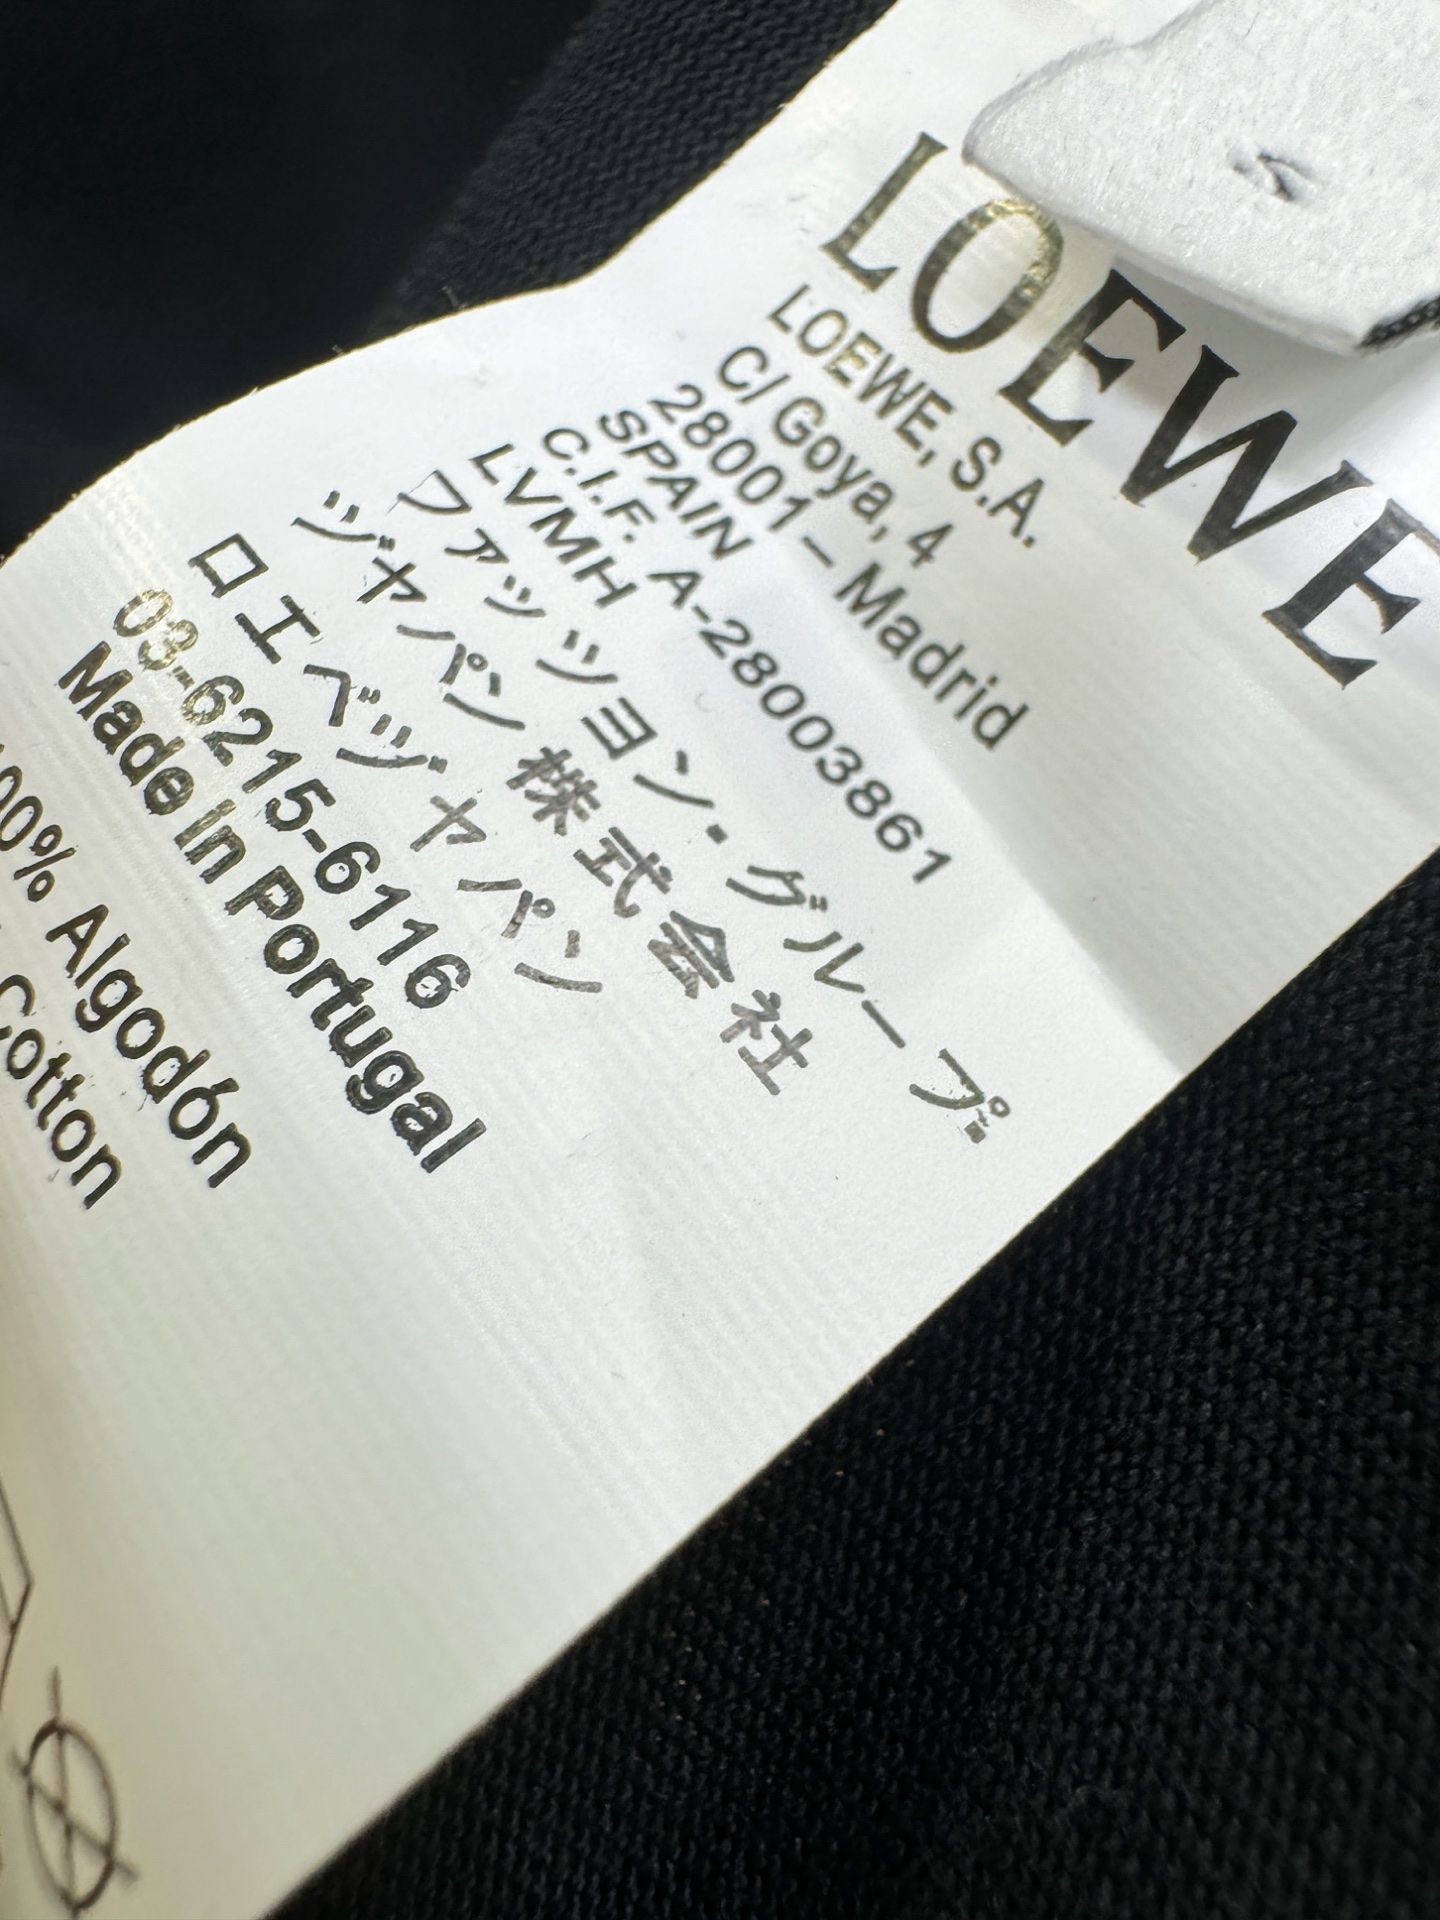 LOEWE
LOEWE, S.A.
C/ Goya, 4
28001 – Madrid
SPAIN
C.I.F. A-28003861
LVMH
ファッション・グループ
ジャパン株式会社
ロエベジャパン
03-6215-6116
Made in Portugal
00% Algodón
Cotton